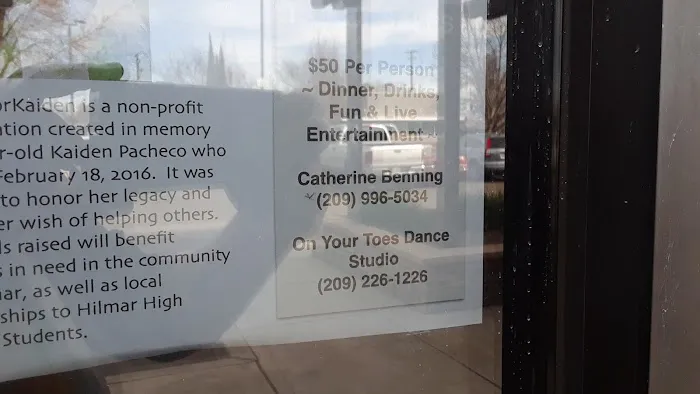 orKaiden is a non-profit
ation created in memory
r-old Kaiden Pacheco who
February 18, 2016. It was
to honor her legacy and
er wish of helping others.
ls raised will benefit
s in need in the community
ar, as well as local
ships to Hilmar High
Students.
$50 Per Person
~ Dinner, Drinks,
Fun & Live
Entertainment ~
Catherine Benning
(209) 996-5034
On Your Toes Dance
Studio
(209) 226-1226